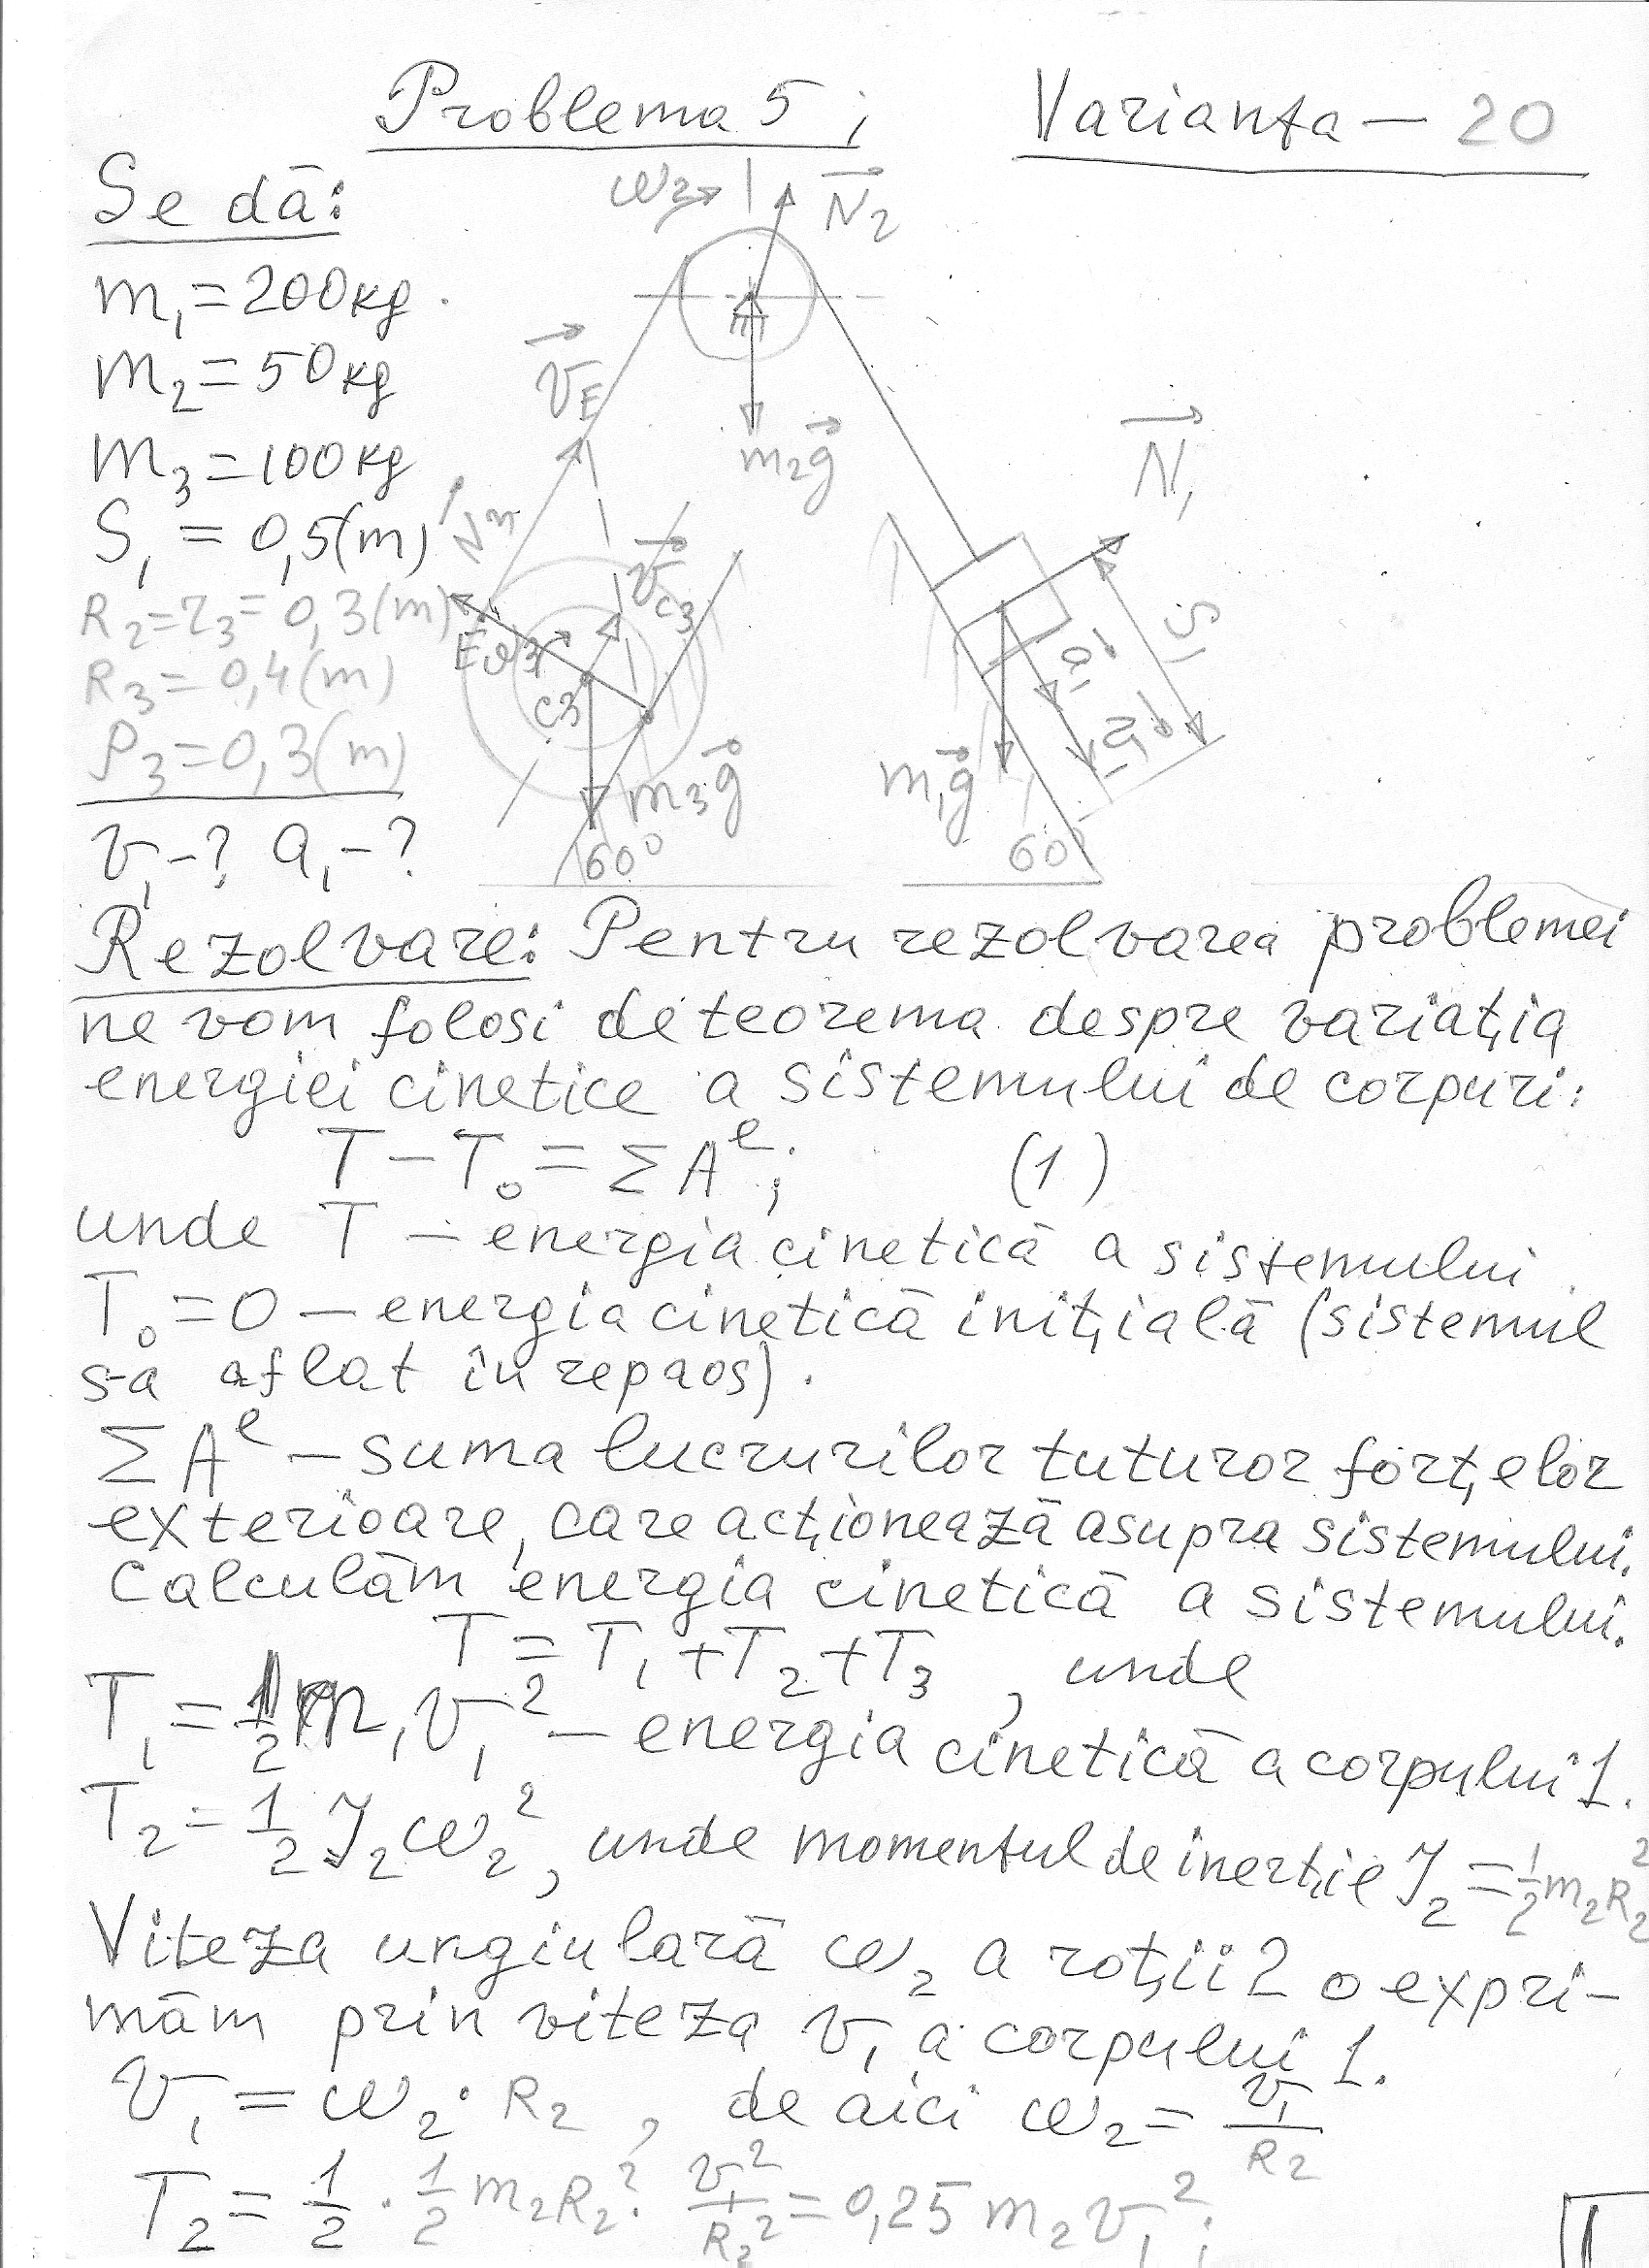 Problema 5; Varianta — 20
Se dă:
m₁ = 200 kg
m₂ = 50 kg
m₃ = 100 kg
S₁ = 0,5(m)
R₂ = r₃ = 0,3(m)
R₃ = 0,4(m)
ρ₃ = 0,3(m)
v₁ - ? a₁ - ?
ω₂
N₂
v_E
m₂g
N₁
v_C3
E
ω₃
C₃
S₁
a₁
v₁
m₃g
m₁g
60°
60°
Rezolvare: Pentru rezolvarea problemei
ne vom folosi de teorema despre variația
energiei cinetice a sistemului de corpuri:
T − T₀ = ΣAᵉ; (1)
unde T — energia cinetică a sistemului
T₀ = 0 — energia cinetică inițială (sistemul
s-a aflat în repaos).
ΣAᵉ — suma lucrurilor tuturor forțelor
exterioare, care acționează asupra sistemului.
Calculăm energia cinetică a sistemului.
T = T₁ + T₂ + T₃, unde
T₁ = 1/2 m₁v₁² — energia cinetică a corpului 1.
T₂ = 1/2 J₂ω₂², unde momentul de inerție J₂ = 1/2 m₂R₂²
Viteza ungiulară ω₂ a roții 2 o expri-
măm prin viteza v₁ a corpului 1.
v₁ = ω₂ · R₂, de aici ω₂ = v₁/R₂
T₂ = 1/2 · 1/2 m₂R₂² · v₁²/R₂² = 0,25 m₂v₁²;